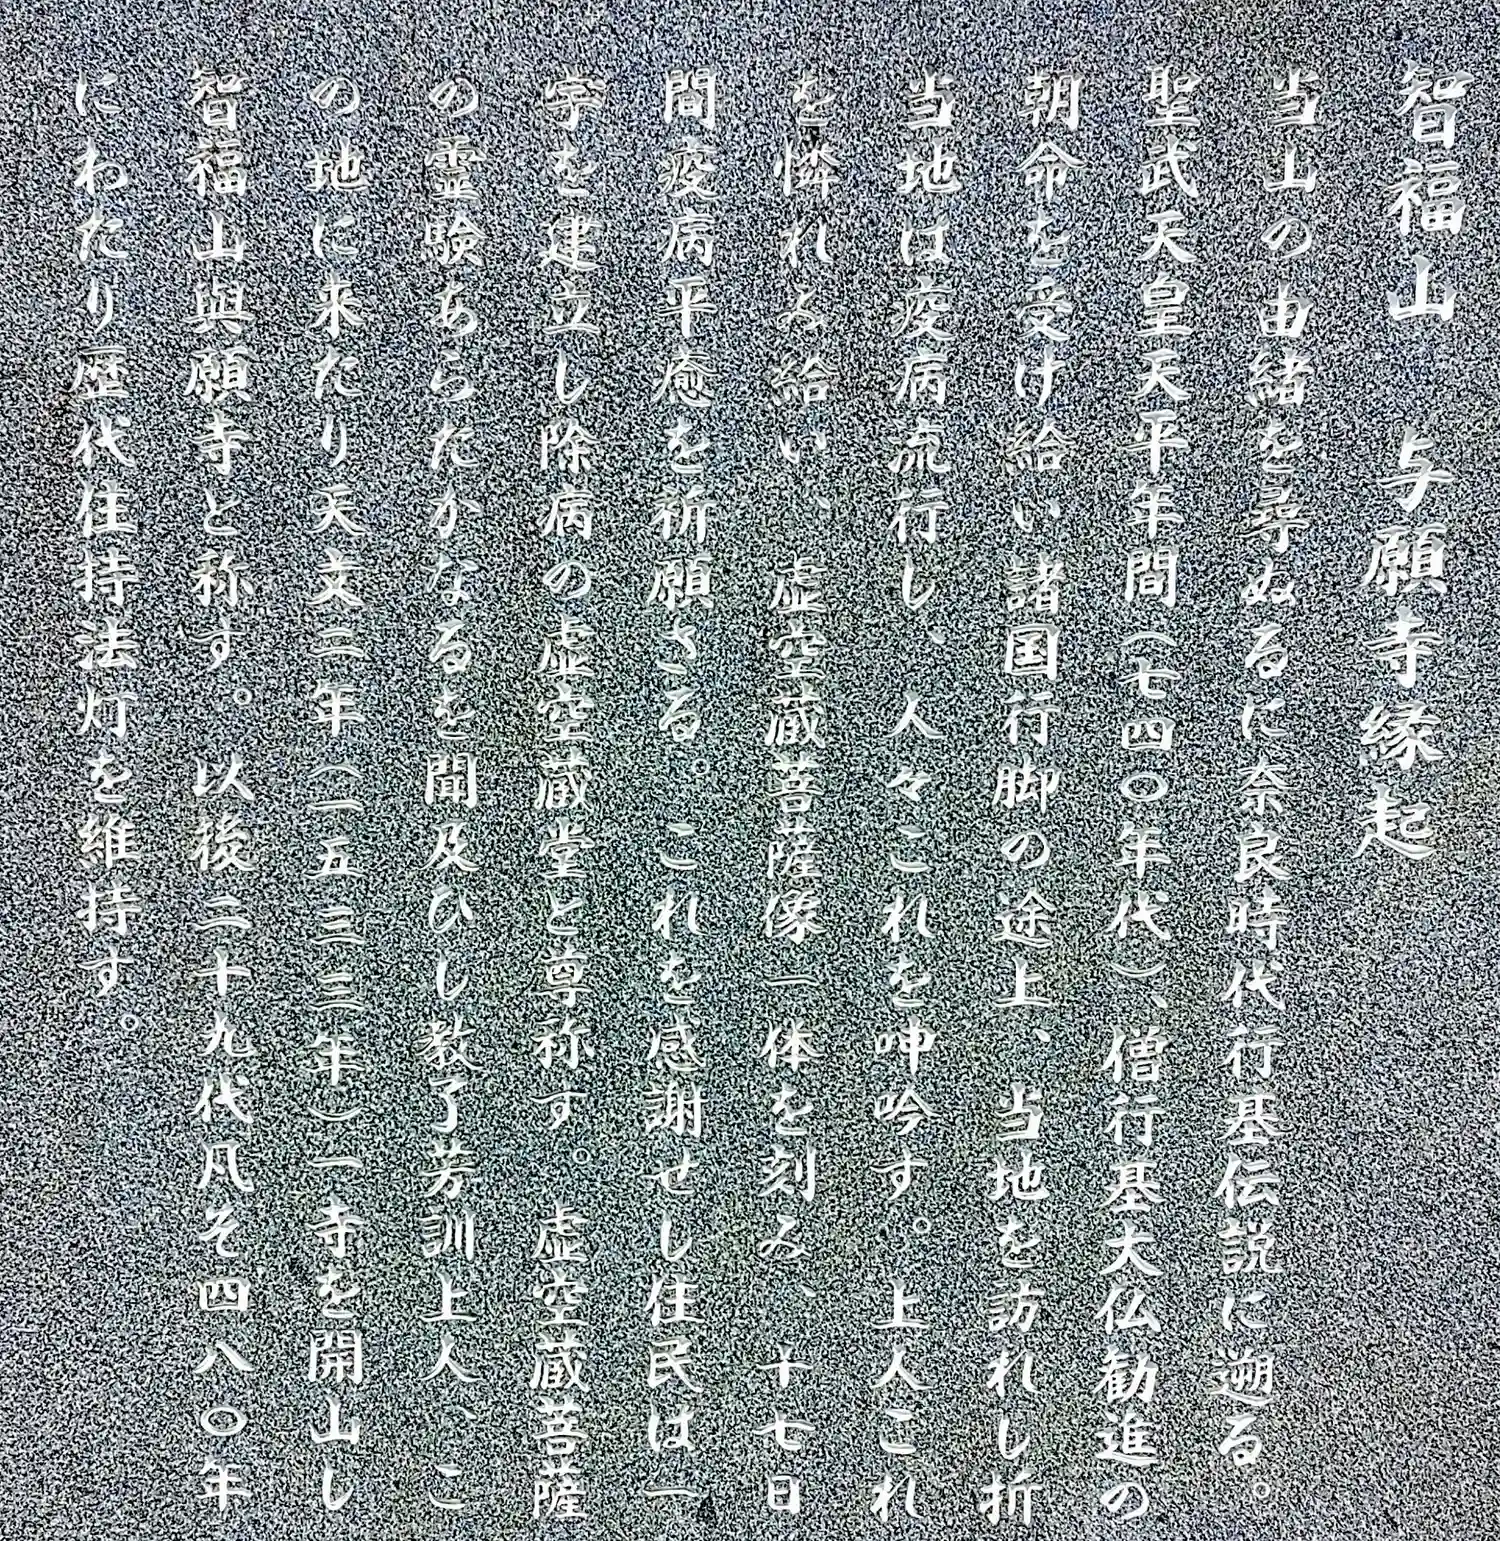 智福山　与願寺縁起
当山の由緒を尋ぬるに奈良時代行基伝説に遡る。
聖武天皇天平年間（七四〇年代）、僧行基大仏勧進の
朝命を受け給い諸国行脚の途上、当地を訪れし折
当地は疫病流行し、人々これを呻吟す。上人これ
を憐れみ給い、虚空蔵菩薩像一体を刻み、十七日
間疫病平癒を祈願さる。これを感謝せし住民は一
宇を建立し除病の虚空蔵堂と尊称す。虚空蔵菩薩
の霊験あらたかなるを聞及びし教了芳訓上人、こ
の地に来たり天文二年（一五三三年）一寺を開山し
智福山與願寺と称す。以後二十九代凡そ四八〇年
にわたり歴代住持法灯を維持す。